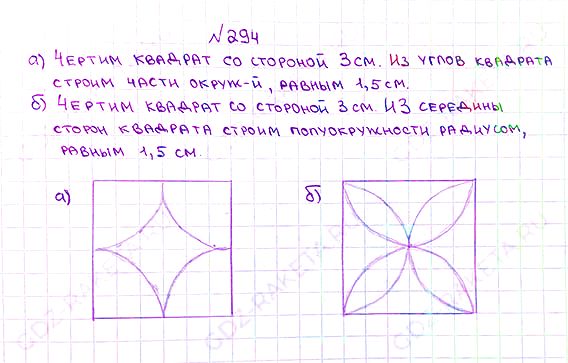 №294
а) Чертим квадрат со стороной 3см. Из углов квадрата
строим части окруж-й, равным 1,5см.
б) Чертим квадрат со стороной 3см. Из середины
сторон квадрата строим полуокружности радиусом,
равным 1,5 см.
а) б)
GDZ-RAKETA.RU
GDZ-RAKETA.RU